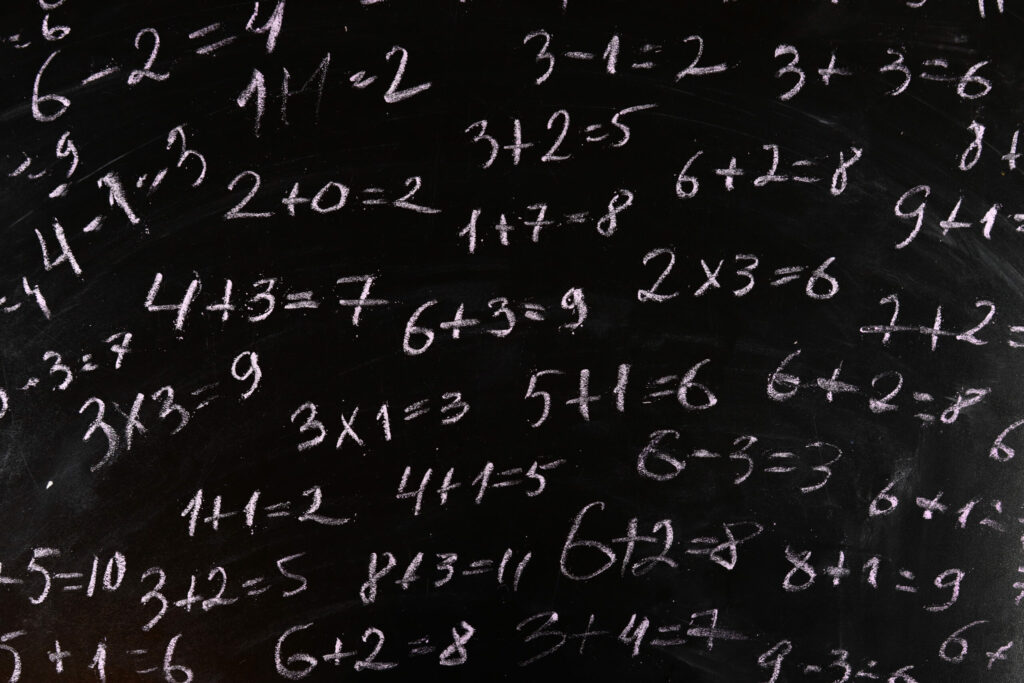 6
6-2=4
1+1=2
3-1=2
3+3=6
=9
4-1=3
3+2=5
6+2=8
8+
2+0=2
1+7=8
9+1=
=4
4+3=7
6+3=9
2x3=6
7+2=
-3=7
3x3=9
3x1=3
5+1=6
6+2=8
6
1+1=2
4+1=5
6-3=3
6+1=
+5=10
3+2=5
8+3=11
6+2=8
8+1=9
5+1=6
6+2=8
3+4=7
9-3=6
6+